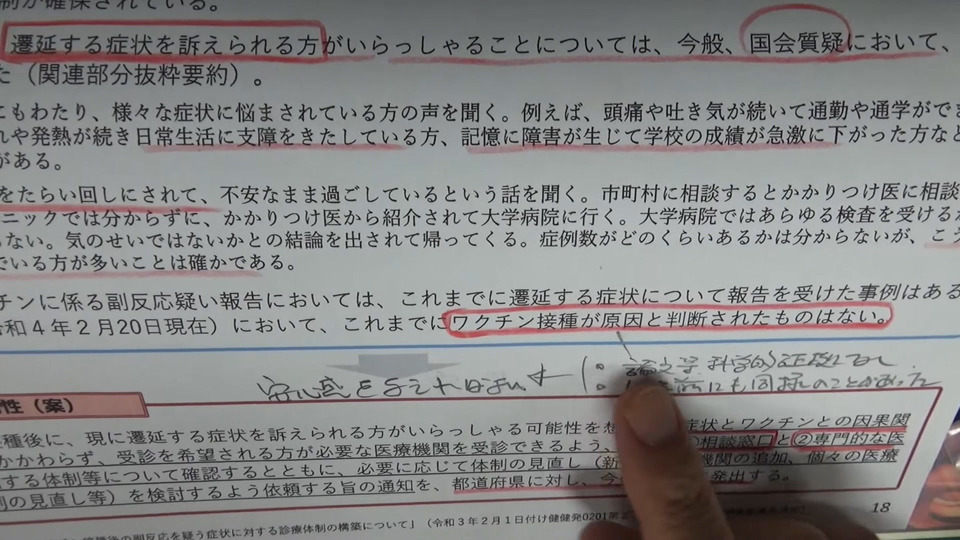 制が確保されている。
遷延する症状を訴えられる方がいらっしゃることについては、今般、国会質疑において、
た（関連部分抜粋要約）。
にもわたり、様々な症状に悩まされている方の声を聞く。例えば、頭痛や吐き気が続いて通勤や通学ができ
れや発熱が続き日常生活に支障をきたしている方、記憶に障害が生じて学校の成績が急激に下がった方など
がある。
をたらい回しにされて、不安なまま過ごしているという話を聞く。市町村に相談するとかかりつけ医に相談
ニックでは分からずに、かかりつけ医から紹介されて大学病院に行く。大学病院ではあらゆる検査を受けるが
らない。気のせいではないかとの結論を出されて帰ってくる。症例数がどのくらいあるかは分からないが、こう
でいる方が多いことは確かである。
チンに係る副反応疑い報告においては、これまでに遷延する症状について報告を受けた事例はある
和４年２月20日現在）において、これまでにワクチン接種が原因と判断されたものはない。
論文等 科学的
安心感を与えれば
にも同様のことがあった
性（案）
種後に、現に遷延する症状を訴えられる方がいらっしゃる可能性を 症状とワクチンとの因果関
かかわらず、受診を希望される方が必要な医療機関を受診できるよう、 相談窓口と②専門的な医
する体制等について確認するとともに、必要に応じて体制の見直し（新 機関の追加、個々の医療
制の見直し等）を検討するよう依頼する旨の通知を、都道府県に対し、今 発出する。
18
接種後の副反応を疑う症状に対する診療体制の構築について」（令和３年２月１日付け健健発0201第